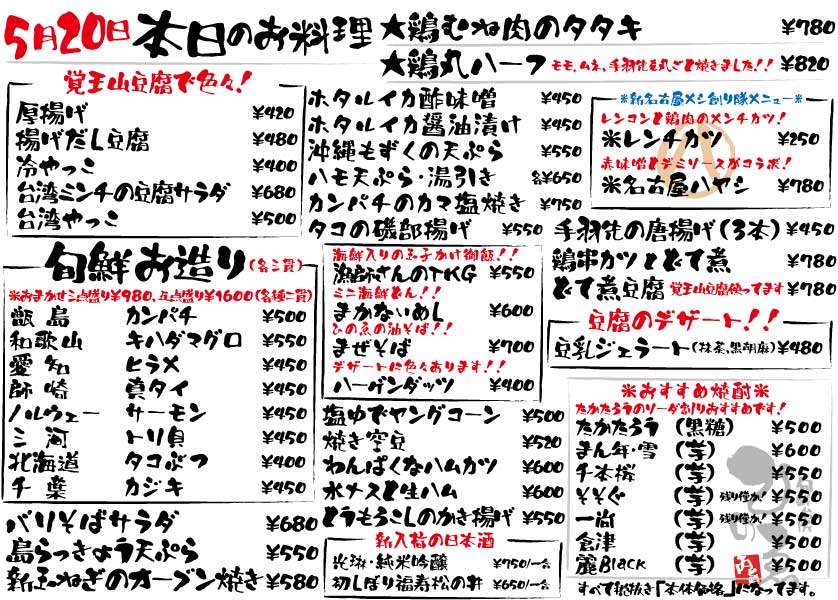 5月20日 本日のお料理
★鶏むね肉のタタキ ¥780
★鶏丸ハーフ モモ、ムネ、手羽先を丸ごと焼きました!! ¥820
覚王山豆腐で色々!
厚揚げ ¥420
揚げだし豆腐 ¥480
冷やっこ ¥400
台湾ミンチの豆腐サラダ ¥680
台湾やっこ ¥500
ホタルイカ酢味噌 ¥450
ホタルイカ醤油漬け ¥450
沖縄もずくの天ぷら ¥550
ハモ天ぷら・湯引き 各¥650
カンパチのカマ塩焼き ¥750
タコの磯部揚げ ¥550
※新名古屋メシ創り隊メニュー※
レンコンと鶏肉のメンチカツ!
※レンチカツ ¥250
赤味噌とデミソースがコラボ!
※名古屋ハヤシ ¥780
手羽先の唐揚げ(3本) ¥450
鶏串カツとどて煮 ¥780
どて煮豆腐 覚王山豆腐使ってます ¥780
旬鮮お造り(各三貫)
※おまかせ三点盛り¥980、五点盛り¥1600(各種二貫)
甑島 カンパチ ¥500
和歌山 キハダマグロ ¥550
愛知 ヒラメ ¥450
師崎 真タイ ¥450
ノルウェー サーモン ¥450
三河 トリ貝 ¥450
北海道 タコぶつ ¥400
千葉 カジキ ¥450
海鮮入りの玉子かけ御飯!!
漁師さんのTKG ¥550
ミニ海鮮どん!!
まかないめし ¥600
ひの食の油そば!!
まぜそば ¥700
デザートに色々あります!!
ハーゲンダッツ ¥400
豆腐のデザート!!
豆乳ジェラート(抹茶、黒胡麻) ¥480
塩ゆでヤングコーン ¥500
焼き空豆 ¥520
わんぱくなハムカツ ¥600
水ナスと生ハム ¥600
とうもろこしのかき揚げ ¥550
※おすすめ焼酎※
たかたろうのソーダ割りおすすめです!
たかたろう (黒糖) ¥500
まん年・雪 (芋) ¥600
千本桜 (芋) ¥550
そそぐ (芋) 残り僅か! ¥550
一尚 (芋) 残り僅か! ¥550
倉津 (芋) ¥500
麗Black (芋) ¥500
すべて税抜き「本体価格」になってます。
バリそばサラダ ¥680
島らっきょう天ぷら ¥550
新玉ねぎのオーブン焼き ¥580
新入荷の日本酒
光琳・純米吟醸 ¥750/一合
初しぼり福寿松の井 ¥650/一合